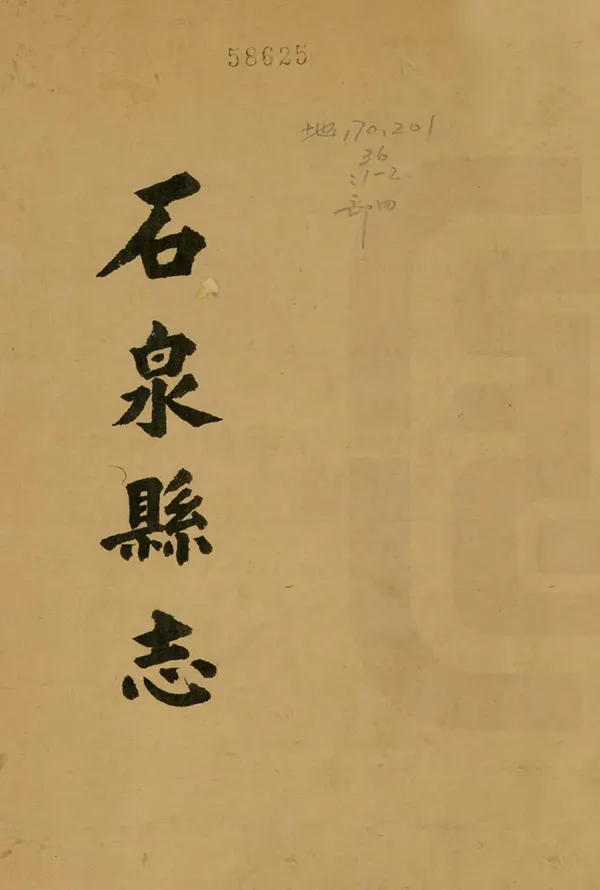 58625
地,70,201
36
:1-2
部四
石泉縣志